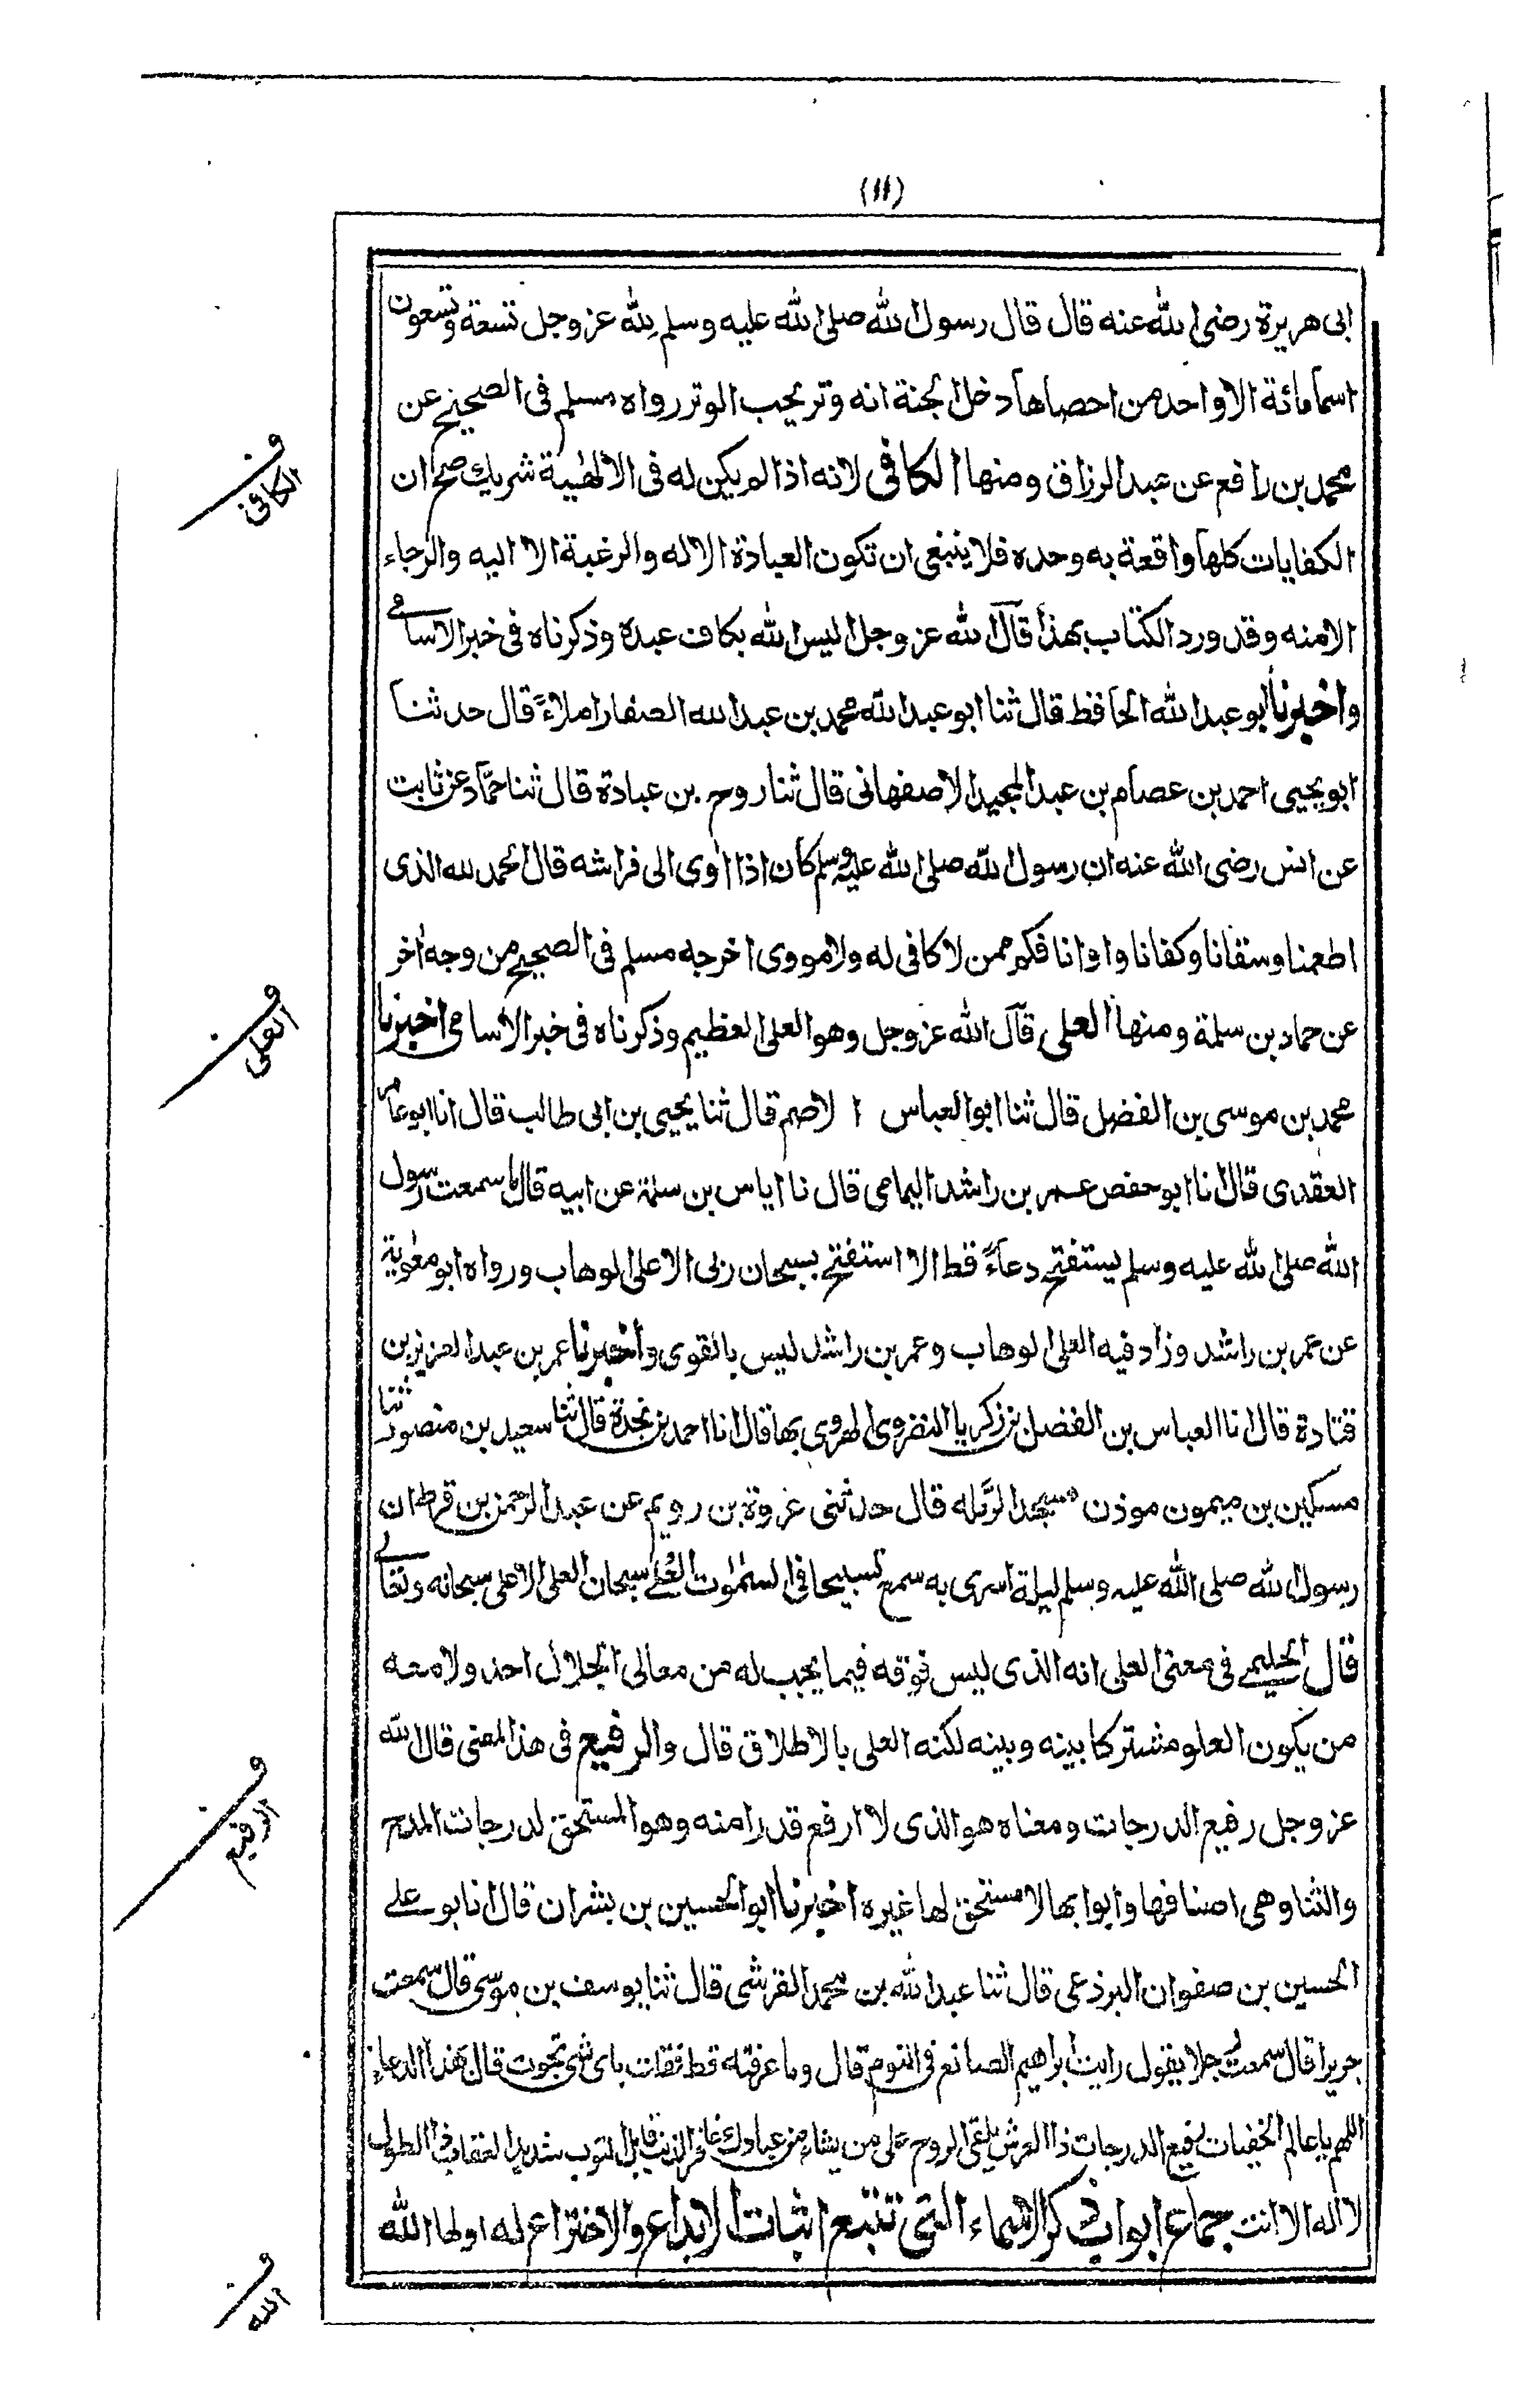 (١١)
ابى هريرة رضى الله عنه قال قال رسول الله صلى الله عليه وسلم لله عز وجل تسعة وتسعون
اسما مائة الا واحد من احصاها دخل الجنة انه وتر يحب الوتر رواه مسلم فى الصحيح عن
محمد بن رافع عن عبد الرزاق ومنها الكافى لانه اذا لم يكن له فى الالهية شريك صح ان
الكفايات كلها واقعة به وحده فلا ينبغى ان تكون العبادة الا له والرغبة الا اليه والرجاء
الا منه وقد ورد الكتاب بهذا قال الله عز وجل اليس الله بكاف عبده وذكرناه فى خبر الاسامى
واخبرنا ابو عبد الله الحافظ قال ثنا ابو عبد الله محمد بن عبد الله الصفار املاءً قال حدثنا
ابو يحيى احمد بن عصام بن عبد المجيد الاصفهانى قال ثنا روح بن عبادة قال ثنا حمّاد عن ثابت
عن انس رضى الله عنه ان رسول الله صلى الله عليه وسلم كان اذا اوى الى فراشه قال الحمد لله الذى
اطعمنا وسقانا وكفانا واوانا فكم ممن لا كافى له ولا مووى اخرجه مسلم فى الصحيح من وجه اخر
عن حماد بن سلمة ومنها العلى قال الله عز وجل وهو العلى العظيم وذكرناه فى خبر الاسامى اخبرنا
محمد بن موسى بن الفضل قال ثنا ابو العباس الاصم قال ثنا يحيى بن ابى طالب قال انا ابو عامر
العقدى قال انا ابو حفص عمر بن راشد اليمامى قال نا اياس بن سلمة عن ابيه قال ما سمعت رسول
الله صلى الله عليه وسلم يستفتح دعاءً قط الا استفتح بسبحان ربى الاعلى الوهاب ورواه ابو معوية
عن عمر بن راشد وزاد فيه العلى الوهاب وعمر بن راشد ليس بالقوى واخبرنا عمر بن عبد العزيز بن
قتادة قال انا العباس بن الفضل بن زكريا النضروى الهروى بها قال انا احمد بن نجدة قال ثنا سعيد بن منصور ثنا
مسكين بن ميمون موذن مسجد الرمله قال حدثنى عروة بن رويم عن عبد الرحمن بن قرط ان
رسول الله صلى الله عليه وسلم ليلة اسرى به سمع تسبيحا فى السموات العلى سبحان العلى الاعلى سبحانه وتعالى
قال الحليمى فى معنى العلى انه الذى ليس فوقه فيما يجب له من معالى الجلال احد ولا معه
من يكون العلو مشتركا بينه وبينه لكنه العلى بالاطلاق قال والرفيع فى هذا المعنى قال الله
عز وجل رفيع الدرجات ومعناه هو الذى لا ارفع قدرا منه وهو المستحق لدرجات المدح
والثنا وهى اصنافها وابوابها لا مستحق لها غيره اخبرنا ابو الحسين بن بشران قال انا بو على
الحسين بن صفوان البرذعى قال ثنا عبد الله بن محمد القرشى قال ثنا يوسف بن موسى قال سمعت
جريرا قال سمعت رجلا يقول رايت ابراهيم الصائغ فى النوم قال وما عرفته قط فقلت باى شى نجوت قال بهذا الدعاء
اللهم يا عالم الخفيات رفيع الدرجات ذا العرش يلقى الروح على من يشاء من عبادك غافر الذنب قابل التوب شديد العقاب ذى الطول
لا اله الا انت جماع ابواب ذكر الاسماء التى تتبع اثبات الابداع والاختراع له اولها الله
ف الكافى
ف العلى
ف الرفيع
ف الله